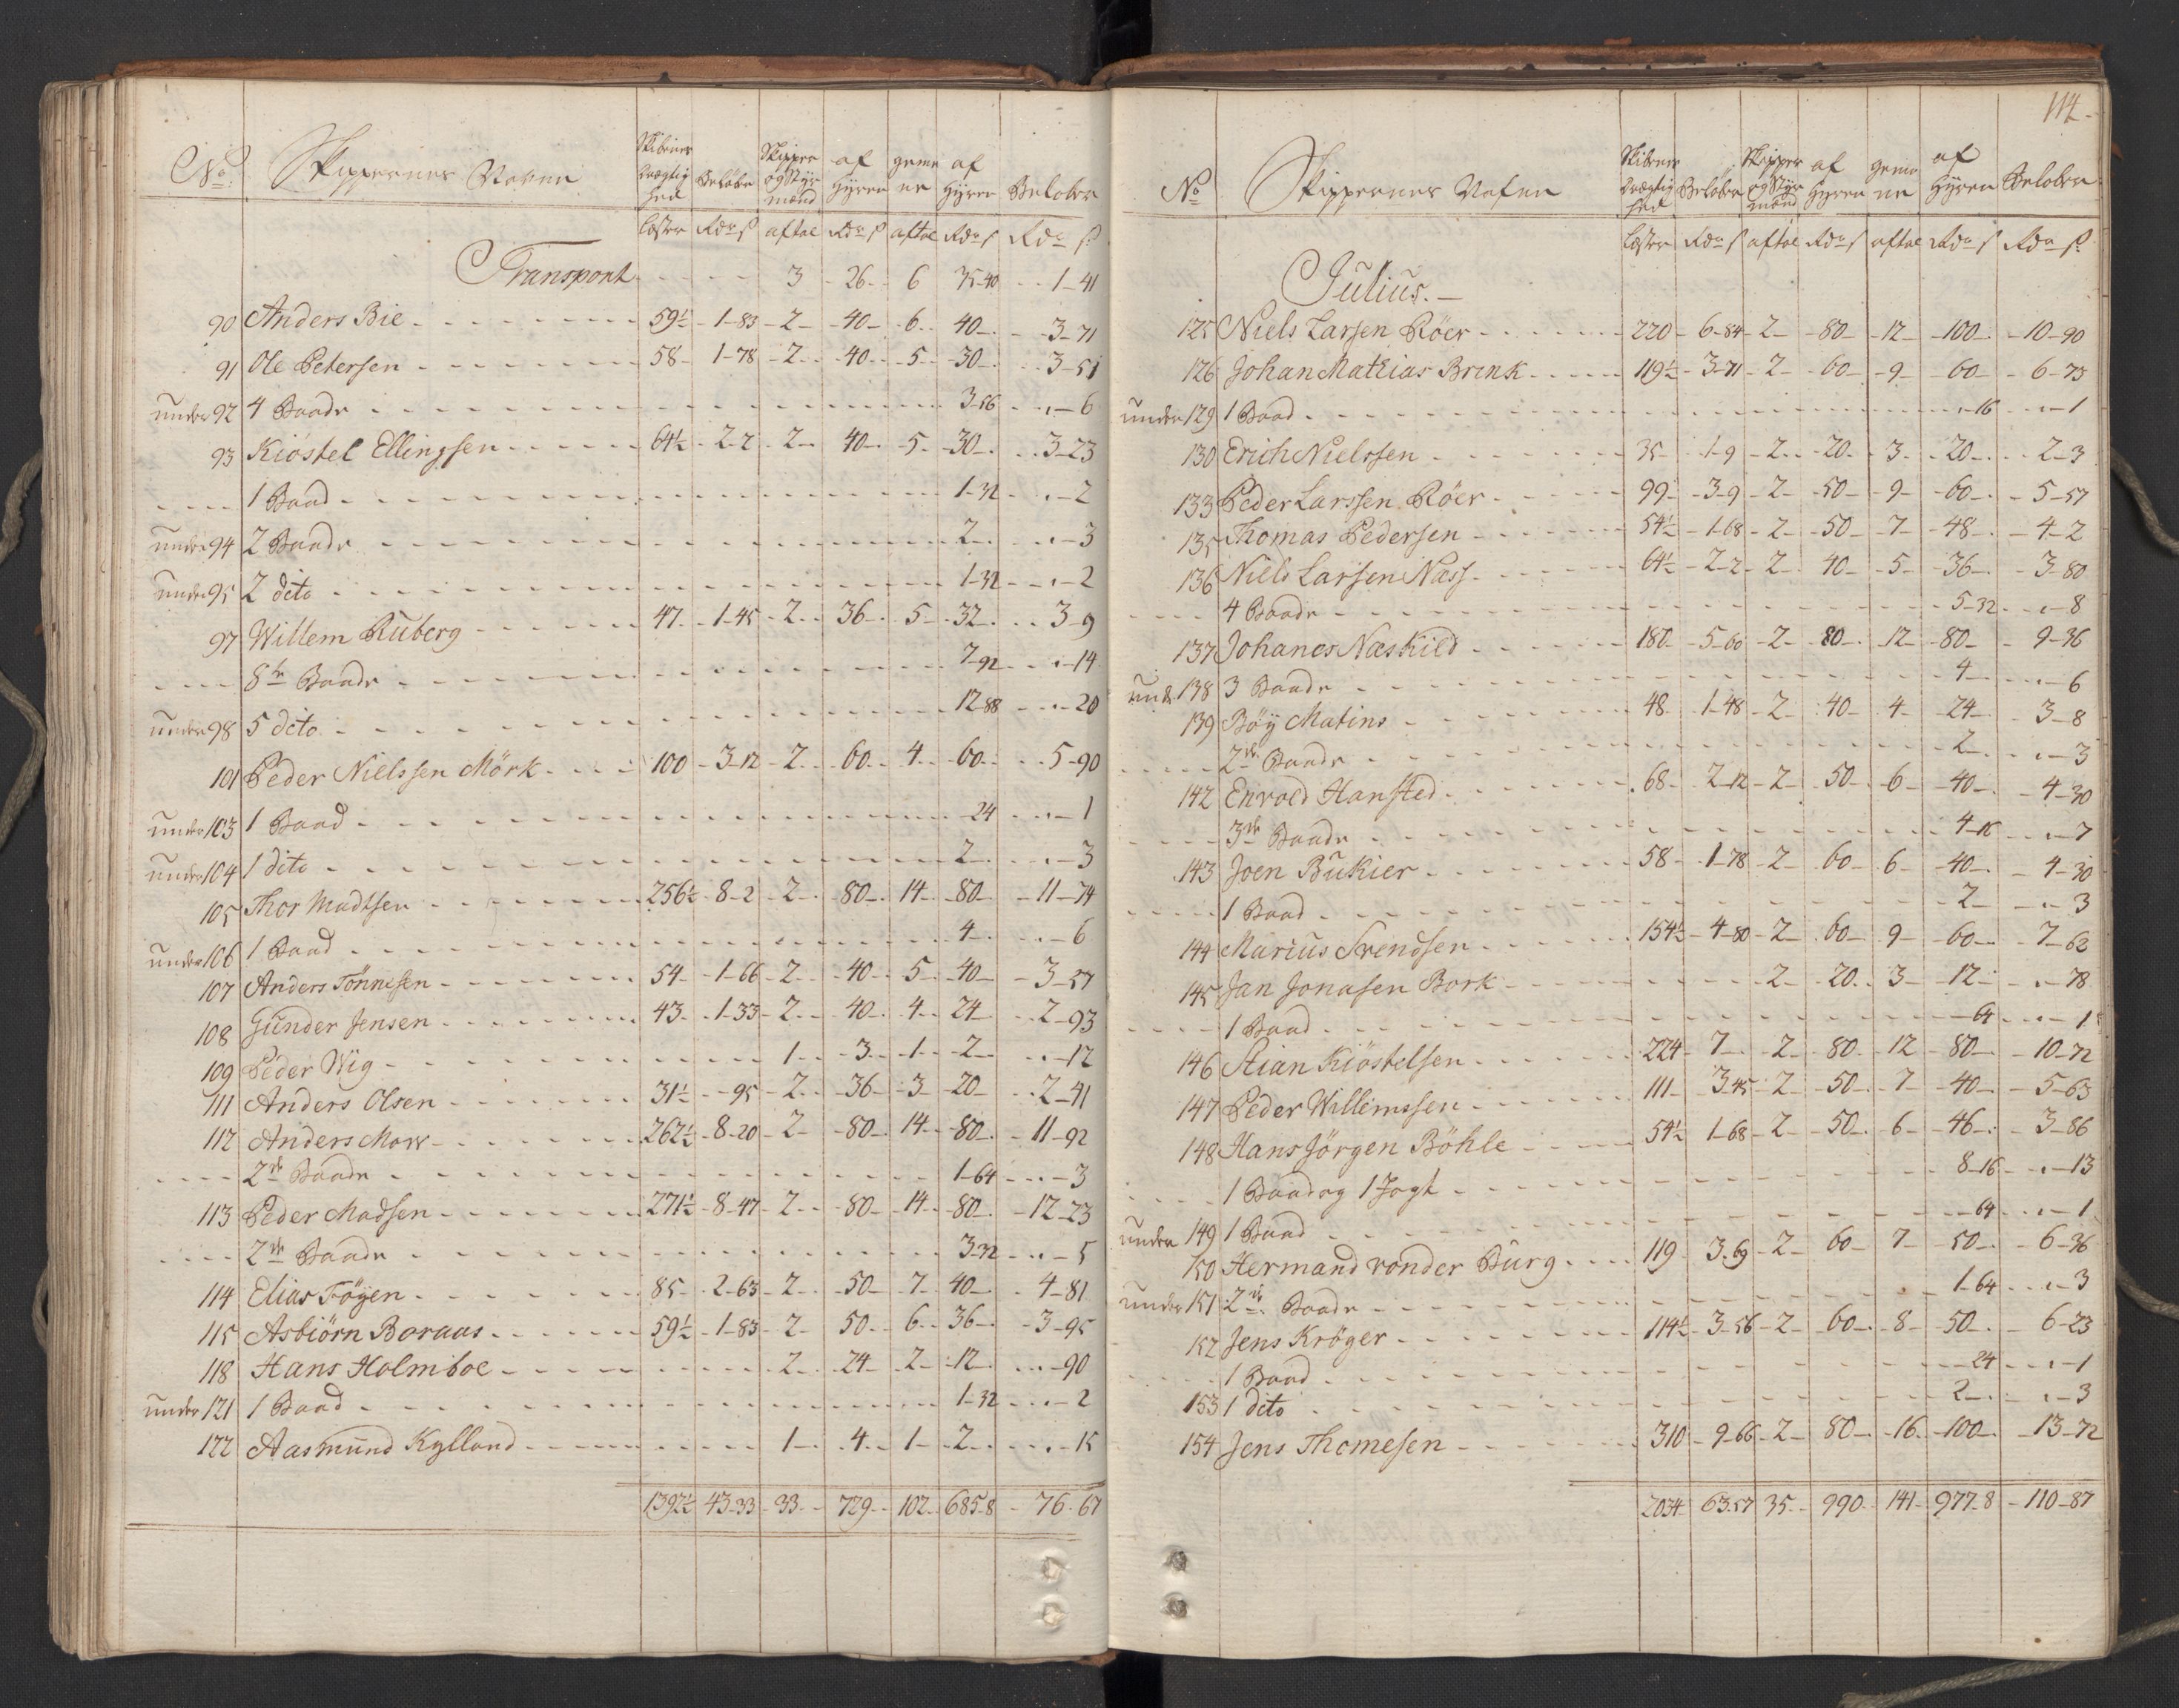 No Skippernes Nafne Skibenes Drægtighed Beløber Skipper og Styrmænd af Hyren gemene af Hyren Beløber
Læster Rdr ß aftal Rdr ß aftal Rdr ß Rdr ß
Transport 3 26 6 35-40 1-41
90 Anders Bie 59½ 1-83 2 40 6 40 3-71
91 Ole Petersen 58 1-78 2 40 5 30 3-51
under 92 4 Baade 3-56 "-6
93 Kiöstel Ellingsen 64½ 2-2 2 40 5 30 3-23
1 Baad 1-32 "-2
under 94 2 Baade 2 "-3
under 95 2 dito 1-32 "-2
97 Willem Ruberg 47 1-45 2 36 5 32 3-9
8te Baade 7-92 "-14
under 98 5 dito 12-88 "-20
101 Peder Nielssen Mörk 100 3-12 2 60 4 60 5-90
under 103 1 Baad 24 "-1
under 104 1 dito 2 "-3
105 Thor Madtsen 256½ 8-2 2 80 14 80 11-74
under 106 1 Baad 4 "-6
107 Anders Tönnesen 54 1-66 2 40 5 40 3-57
108 Gunder Jensen 43 1-33 2 40 4 24 2-93
109 Peder Wig 1 3 1 2 "-12
111 Anders Olsen 31½ 95 2 36 3 20 2-41
112 Anders Morr 262½ 8-20 2 80 14 80 11-92
2de Baade 1-64 "-3
113 Peder Madsen 271½ 8-47 2 80 14 80 12-23
2de Baade 3-32 "-5
114 Elias Föyen 85 2-63 2 50 7 40 4-81
115 Asbiörn Boraas 59½ 1-83 2 50 6 36 3-95
118 Hans Holmboe 2 24 2 12 "-90
under 121 1 Baad 1-32 "-2
122 Aasmund Kylland 1 4 1 2 "-15
1392½ 43-33 33 729 102 685-8 76-67
114
No Skippernes Nafne Skibenes Drægtighed Beløber Skipper og Styrmænd af Hyren gemene af Hyren Beløber
Læster Rdr ß aftal Rdr ß aftal Rdr ß Rdr ß
Julius.
125 Niels Larsen Röer 220 6-84 2 80 12 100 10-90
126 Johan Mathias Brink 119½ 3-71 2 60 9 60 6-73
under 129 1 Baad 16 "-1
130 Erich Nielssen 35 1-9 2 20 3 20 2-3
133 Peder Larssen Röer 99 3-9 2 50 9 60 5-57
135 Thomas Pedersen 54½ 1-68 2 50 7 48 4-2
136 Niels Larsen Næss 64½ 2-2 2 40 5 36 3-80
4 Baade 5-32 "-8
137 Johanes Næskild 180 5-60 2 80 12 80 9-36
und. 138 3 Baade 4 "-6
139 Böy Matins 48 1-48 2 40 4 24 3-8
2de Baade 2 "-3
142 Envold Hansted 68 2-12 2 50 6 40 4-30
3de Baade 4-16 "-7
143 Joen Bukier 58 1-78 2 60 6 40 4-30
1 Baad 2 "-3
144 Marius Svendsen 154½ 4-80 2 60 9 60 7-62
145 Jan Jonasen Bork 2 20 3 12 "-78
1 Baad 64 "-1
146 Stian Kiöstelsen 224 7 2 80 12 80 10-72
147 Peder Willemssen 111 3-45 2 50 7 40 5-63
148 Hans Jörgen Böhle 54½ 1-68 2 50 6 46 3-86
1 Baad og 1 Jagt 8-16 "-13
under 149 1 Baad 64 "-1
150 Hermand vonder Burg 119 3-69 2 60 7 50 6-36
under 151 2de Baade 1-64 "-3
152 Jens Kröger 114½ 3-56 2 60 8 50 6-23
1 Baad 24 "-1
153 1 dito 2 "-3
154 Jens Thomesen 310 9-66 2 80 16 100 13-72
2034 63-57 35 990 141 977-8 110-87